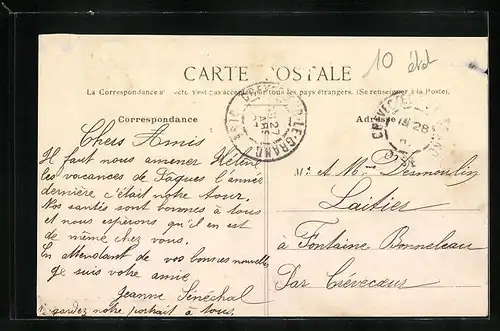 10 état
CARTE POSTALE
La Correspondance au recto n'est pas acceptée par tous les pays étrangers. (Se renseigner à la Poste).
Correspondance
Adresse
Chers Amis
Il faut nous amener Hélène
les vacances de Paques l'année
dernière c'était notre tour.
Nos santés sont bonnes à tous
et nous espérons qu'il en est
de même chez vous.
En attendant de vos bonnes nouvelles
je suis votre amie
Jeanne Sénéchal
regardez notre portrait à tous.
Mr et Me Desmoulin
Laitier
à Fontaine Bonneleau
Par Crèvecœur
CRÈVECŒUR-LE-GRAND
27
MARS
OISE
28